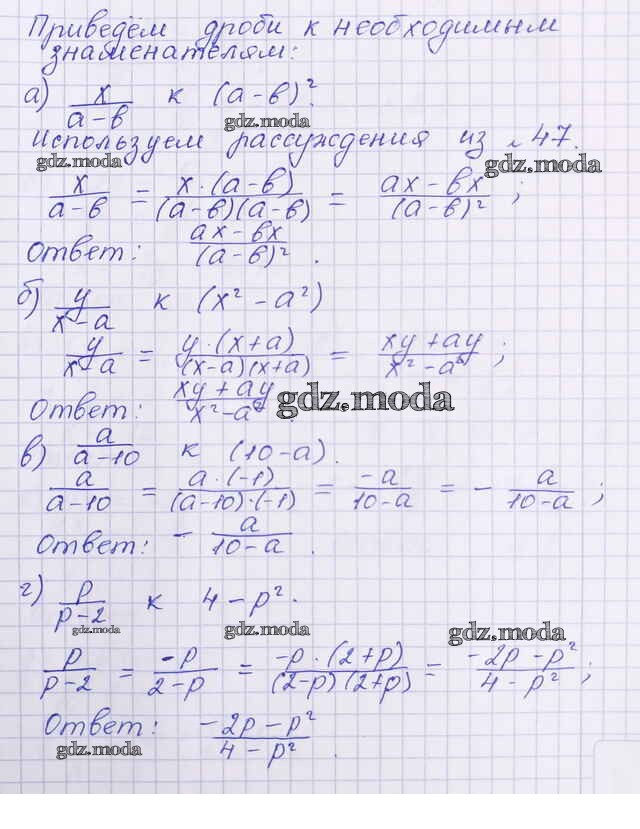 Приведём дроби к необходимым
знаменателям:
а) x/(a-b) к (a-b)².
gdz.moda
Используем рассуждения из №47.
gdz.moda gdz.moda
x/(a-b) = x·(a-b)/((a-b)(a-b)) = (ax-bx)/(a-b)²;
Ответ: (ax-bx)/(a-b)².
б) y/(x-a) к (x²-a²)
y/(x-a) = y·(x+a)/((x-a)(x+a)) = (xy+ay)/(x²-a²);
Ответ: (xy+ay)/(x²-a²).
gdz.moda
в) a/(a-10) к (10-a).
a/(a-10) = a·(-1)/((a-10)·(-1)) = -a/(10-a) = - a/(10-a);
Ответ: - a/(10-a).
г) p/(p-2) к 4-p².
gdz.moda gdz.moda gdz.moda
p/(p-2) = -p/(2-p) = -p·(2+p)/((2-p)(2+p)) = (-2p-p²)/(4-p²);
Ответ: (-2p-p²)/(4-p²).
gdz.moda gdz.moda